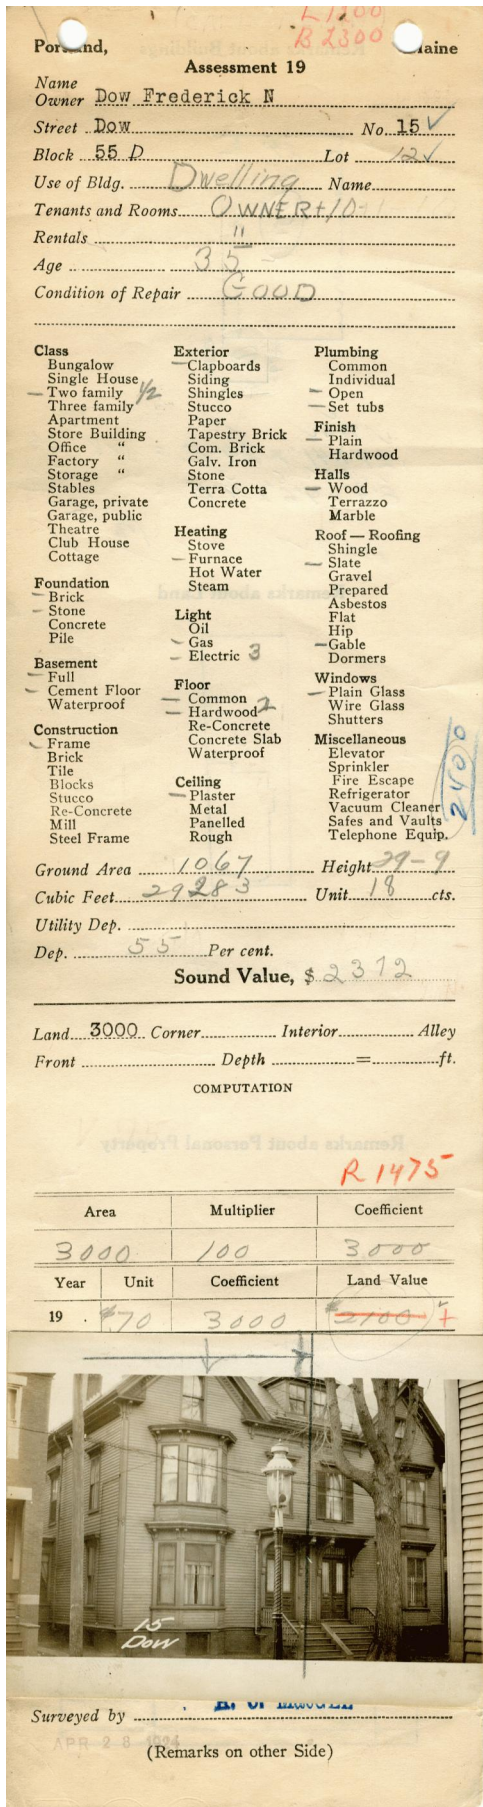 L 1300
B 2300
Portland, Maine
Assessment 19
Name
Owner Dow Frederick N
Street Dow No. 15 ✓
Block 55 D Lot 12 ✓
Use of Bldg. Dwelling Name
Tenants and Rooms OWNER + 10
Rentals "
Age 35
Condition of Repair GOOD
Class
Bungalow
Single House
— Two family 1/2
Three family
Apartment
Store Building
Office "
Factory "
Storage "
Stables
Garage, private
Garage, public
Theatre
Club House
Cottage
Foundation
— Brick
— Stone
Concrete
Pile
Basement
— Full
— Cement Floor
Waterproof
Construction
— Frame
Brick
Tile
Blocks
Stucco
Re-Concrete
Mill
Steel Frame
Exterior
— Clapboards
Siding
Shingles
Stucco
Paper
Tapestry Brick
Com. Brick
Galv. Iron
Stone
Terra Cotta
Concrete
Heating
Stove
— Furnace
Hot Water
Steam
Light
Oil
— Gas
— Electric 3
Floor
— Common
— Hardwood 2
Re-Concrete
Concrete Slab
Waterproof
Ceiling
— Plaster
Metal
Panelled
Rough
Plumbing
Common
Individual
— Open
— Set tubs
Finish
— Plain
Hardwood
Halls
— Wood
Terrazzo
Marble
Roof — Roofing
Shingle
— Slate
Gravel
Prepared
Asbestos
Flat
Hip
— Gable
Dormers
Windows
— Plain Glass
Wire Glass
Shutters
Miscellaneous
Elevator
Sprinkler
Fire Escape
Refrigerator
Vacuum Cleaner
Safes and Vaults
Telephone Equip.
2400
Ground Area 1067 Height 29-9
Cubic Feet 29283 Unit 18 cts.
Utility Dep.
Dep. 55 Per cent.
Sound Value, $ 2372
Land 3000 Corner Interior Alley
Front Depth = ft.
COMPUTATION
R 1475
Area Multiplier Coefficient
3000 100 3000
Year Unit Coefficient Land Value
19 . $70 3000 $2100 +
15
Dow
Surveyed by
APR 28 1924
(Remarks on other Side)